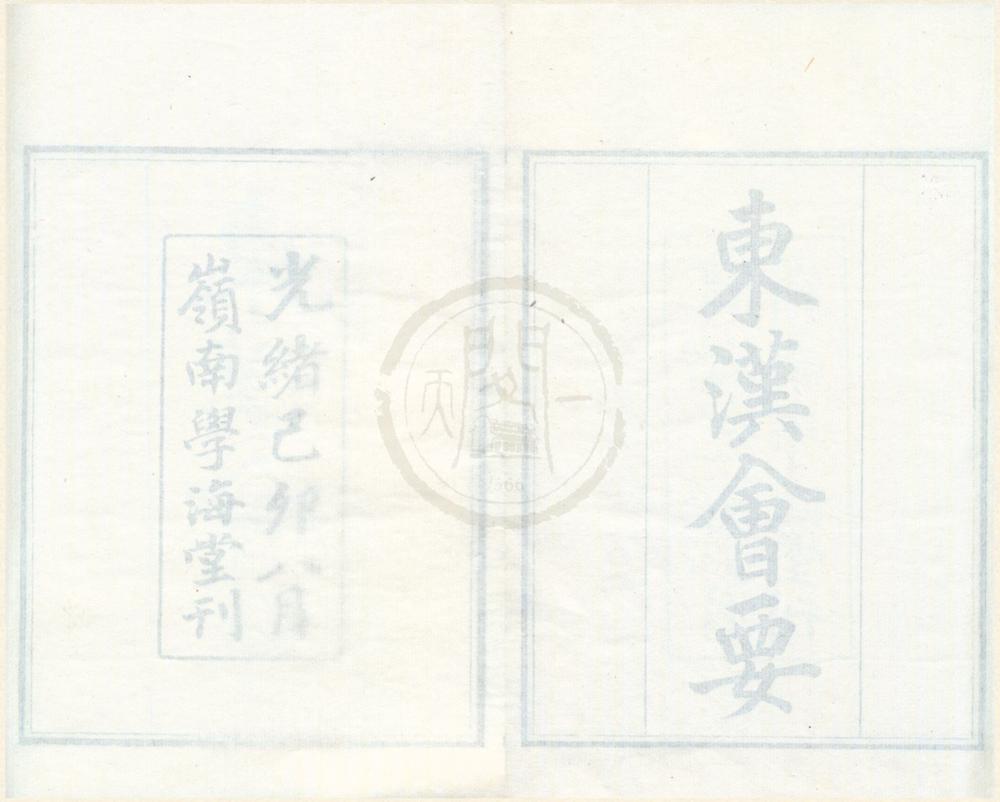 東漢會要
光緒己卯八月
嶺南學海堂刊